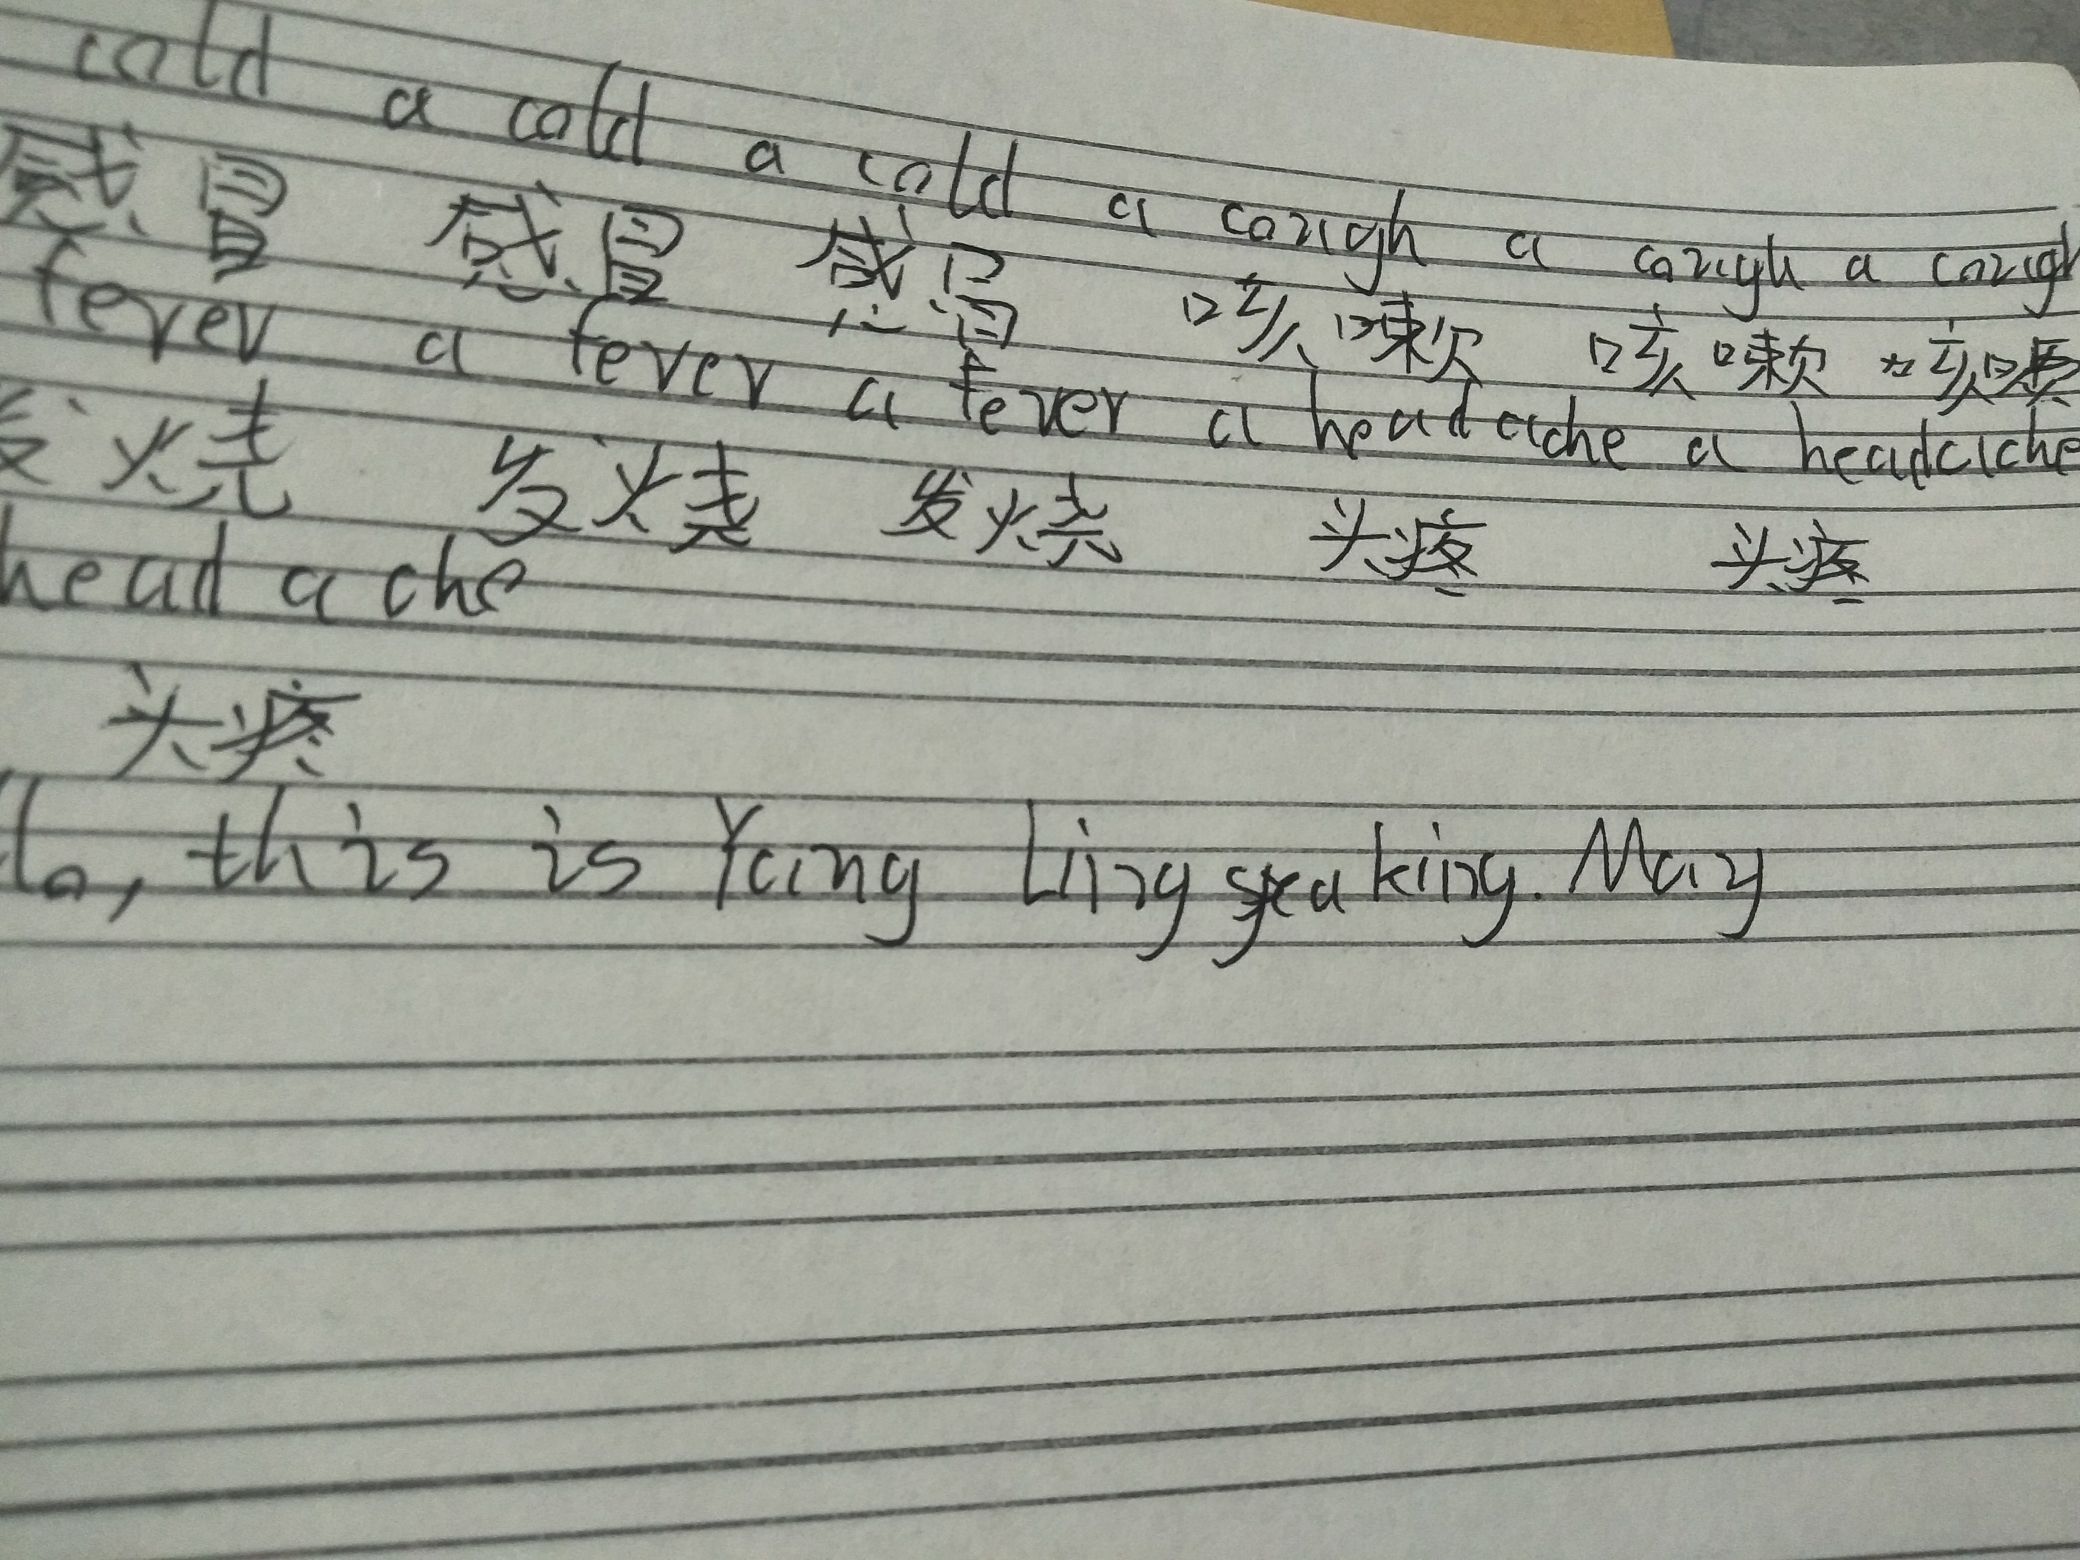 cold a cold a cold a cough a cough a cough
感冒 感冒 感冒 咳嗽 咳嗽 咳嗽
fever a fever a fever a headache a headache
发烧 发烧 发烧 头疼 头疼
headache
头疼
llo, this is Yang Ling speaking. May